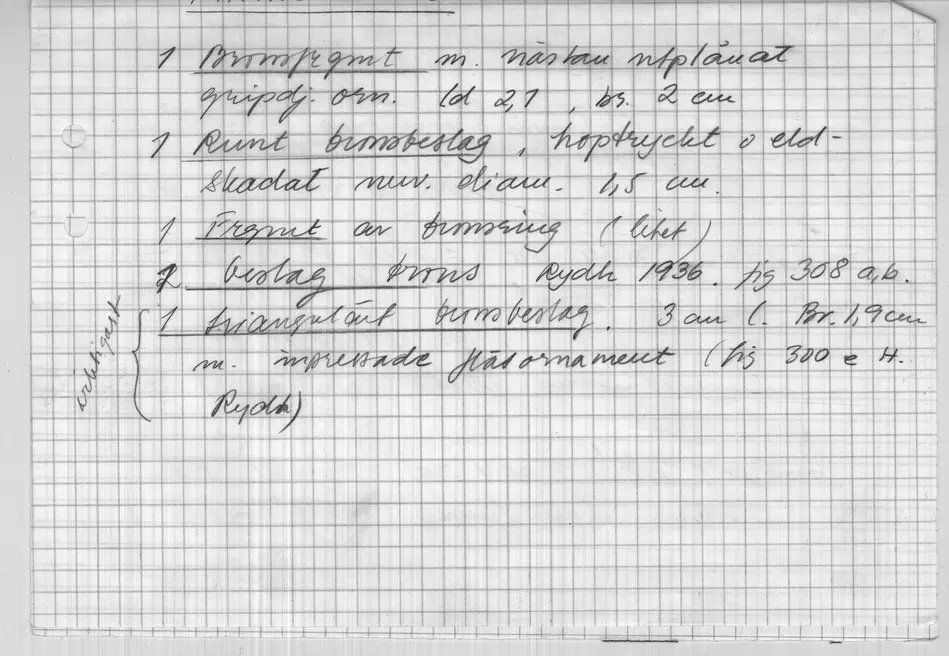 1 Bronsfrgmt m. nästan utplånat
gripdj. orn. ld 2,1, br. 2 cm
1 Runt bronsbeslag, hoptryckt o eld-
skadat nuv. diam. 1,5 cm.
1 Frgmt av bronsring (litet)
2 beslag brons Rydh 1936. fig 308 a,b.
1 triangulärt bronsbeslag. 3 cm l. Br. 1,9 cm
m. impressade flätornament (fig 300 e H.
Rydh)
viktigast